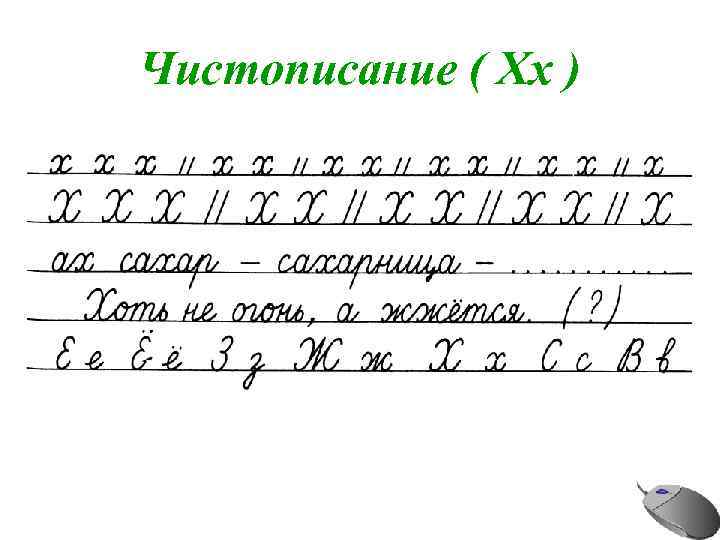 Чистописание ( Хх )
х х х // х х // х х // х х // х х // х
Х Х Х // Х Х // Х Х // Х Х // Х
ах сахар – сахарница – . . . . . . . . . . .
Хоть не огонь, а жжётся. (?)
Е е Ё ё З з Ж ж Х х С с В в